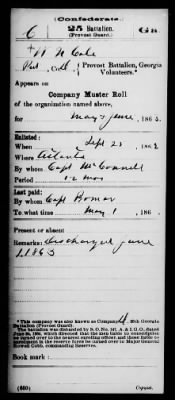 (Confederate.)
C 25 Battalion. Ga
(Provost Guard.)
W N Cole
Pvt, Co. D, Provost Battalion, Georgia Volunteers.*
Appears on
Company Muster Roll
of the organization named above,
for May & June, 1863.
Enlisted:
When Sept 23, 1862
Where Atlanta
By whom Capt McConnell
Period 12 mos
Last paid:
By whom Capt Bomar
To what time May 1, 186
Present or absent
Remarks: Discharged June
1 1863
*This company was also known as Company 25th Georgia
Battalion (Provost Guard)
Book mark:
(650)
Copyist.